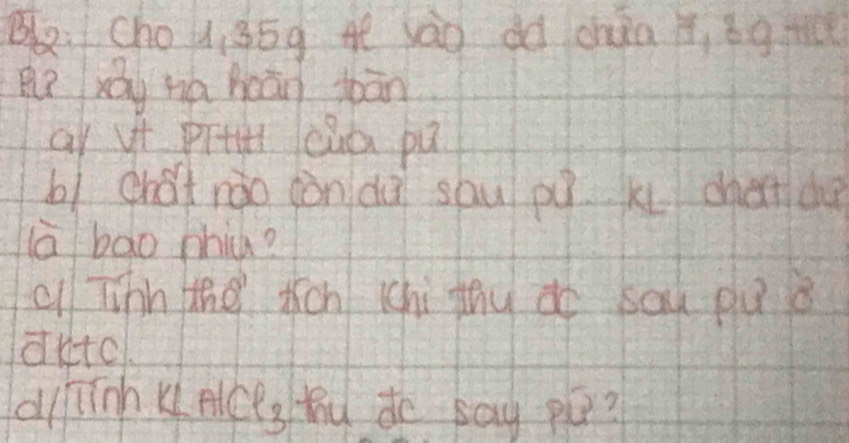 B2. Cho 1,35g Al vào dd chứa 7,3g HCl
PƯ xảy ra hoàn toàn
a/ Vt PTHH của pứ
b/ Chất nào còn dư sau pứ. KL chất dư
là bao nhiu?
c/ Tính thể tích khí thu đc sau pứ ở
đktc.
d/ Tính KL AlCl3 thu đc say pứ?